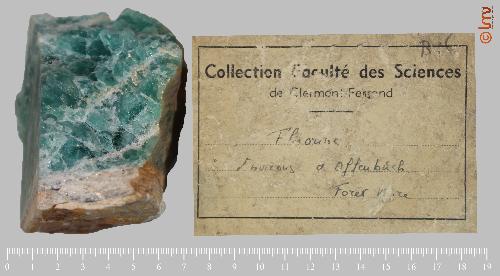 Collection Faculté des Sciences
de Clermont-Ferrand
Fluorine
Environs d'Offenbach
Forêt Noire
0 1 2 3 4 5 6 7 8 9 10 11 12 13 14 15 16 17 18 19